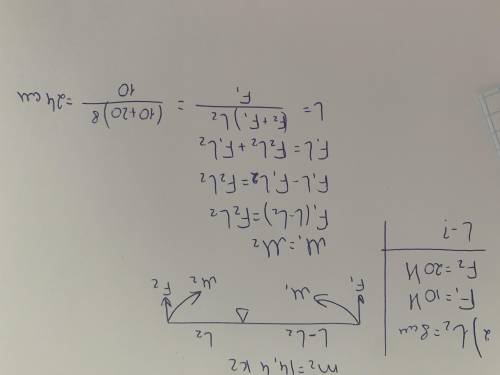 m₂=14,4 кг
2) L₂=8см
F₁=10Н
F₂=20Н
L-?
L-L₂ L₂
F₁ M₁ M₂ F₂
M₁=M₂
F₁(L-L₂)=F₂L₂
F₁L-F₁L₂=F₂L₂
F₁L=F₂L₂+F₁L₂
L= (F₂+F₁)L₂ / F₁ = (10+20)8 / 10 =24см